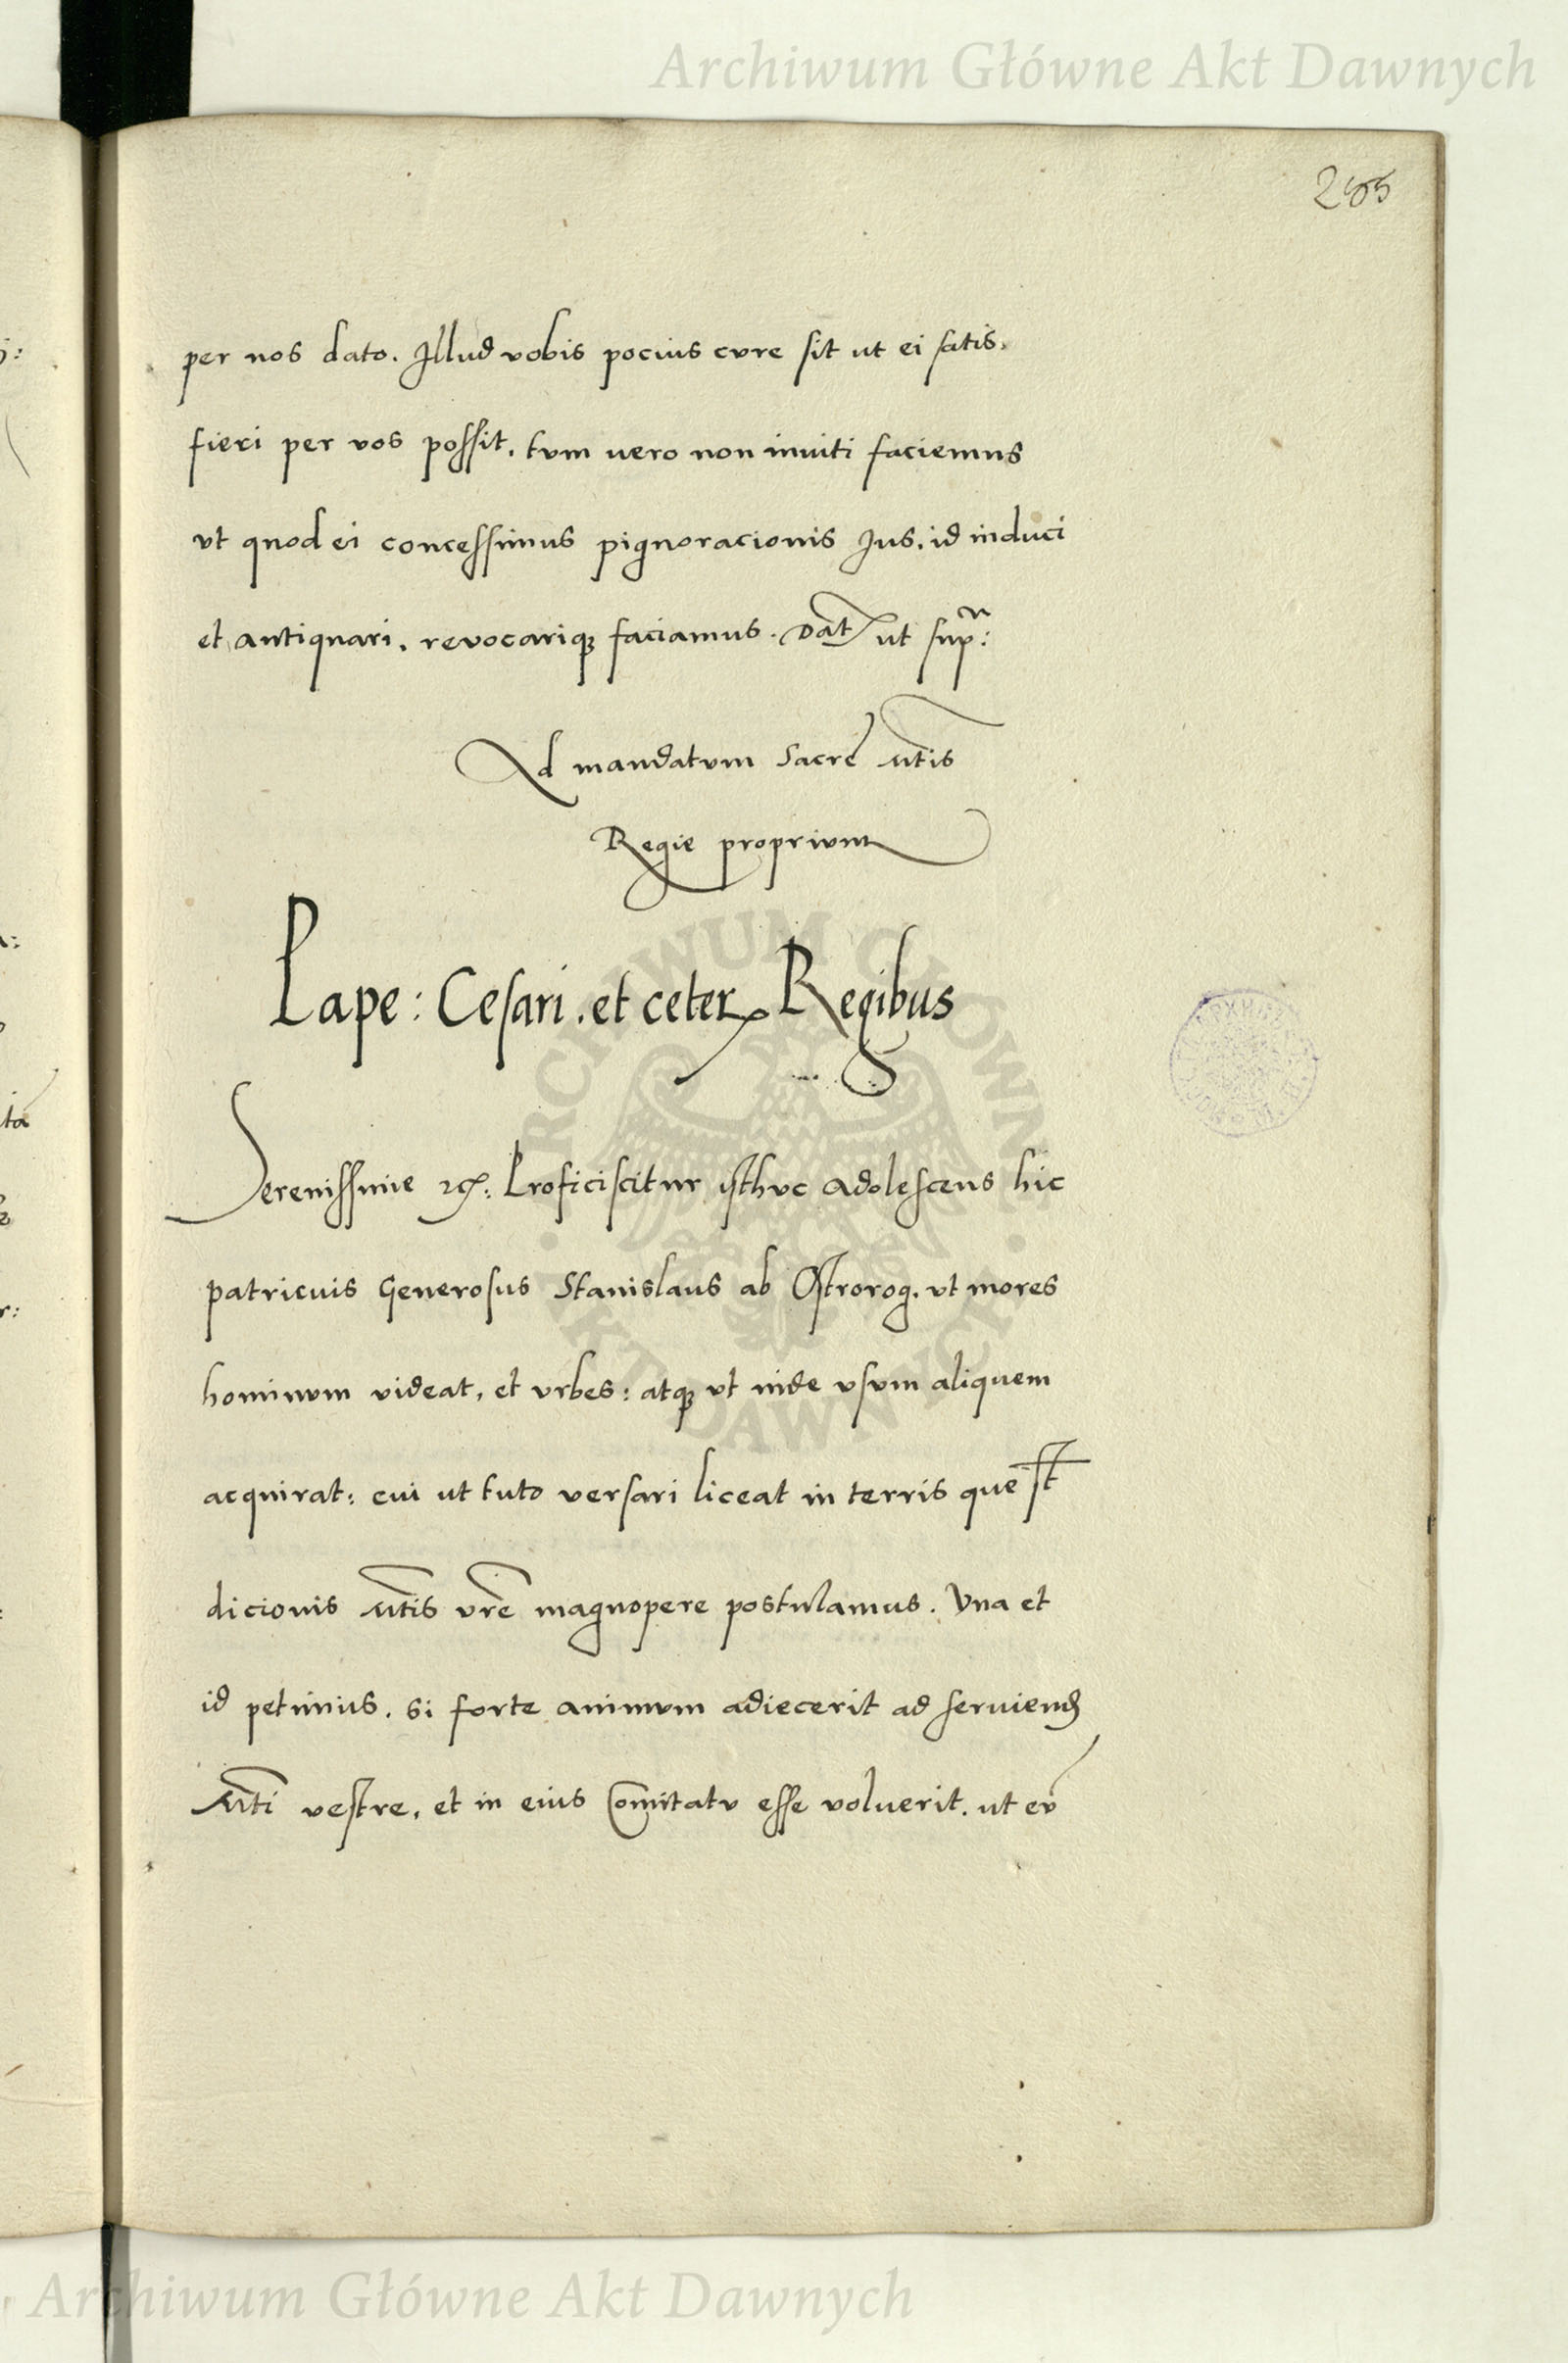 Archiwum Główne Akt Dawnych
per nos dato. Illud vobis pocius cure sit ut ei satis.
fieri per vos possit, tum uero non inuiti faciemus
ut quod ei concessimus pignoracionis Jus, id induci
et antiquari, revocarique faciamus. Dat ut supra:
Ad mandatum Sacre Mtis
Regie proprium
Pape: Cesari. et ceter Regibus
Serenissime : Proficiscitur isthuc adolescens hic
patricius Generosus Stanislaus ab Ostrorog, ut mores
hominum videat, et urbes: atque ut inde usum aliquem
acquirat: cui ut tuto versari liceat in terris que st
dicionis Mtis vre magnopere postulamus. Una et
id petimus, si forte animum adiecerit ad seruiend
Mti vestre, et in eius Comitatu esse voluerit, ut eu
Archiwum Główne Akt Dawnych